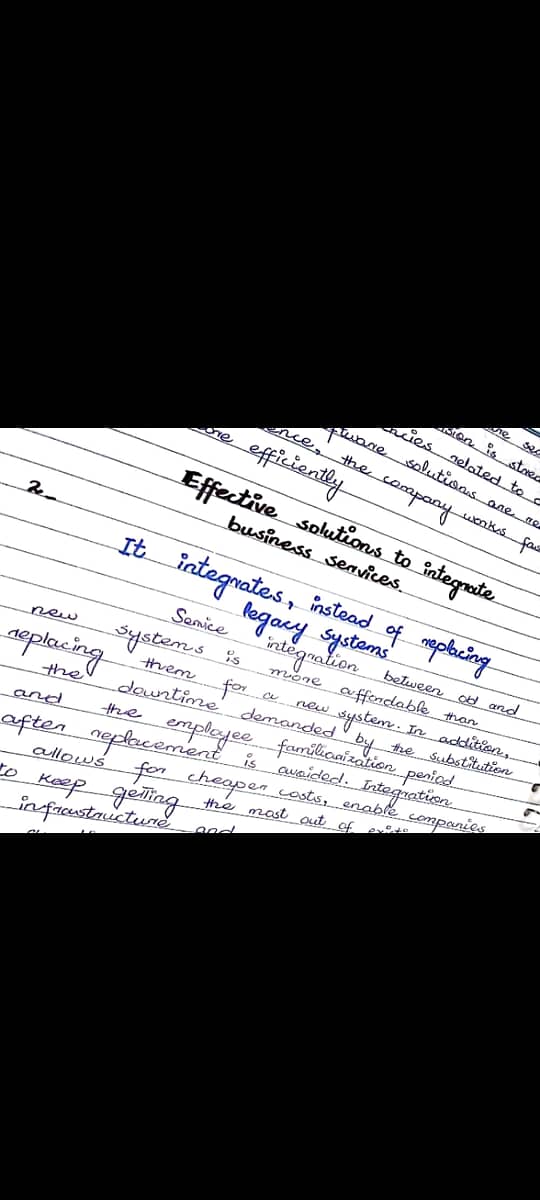 is
related to
software solutions are
the company works
efficiently
2.
Effective solutions to integrate
business services.
It integrates, instead of replacing
legacy systems
Service integration between old and
new systems is more affordable than
replacing them for a new system. In addition,
the downtime demanded by the substitution
and the employee familiarization period
after replacement is avoided. Integration
allows for cheaper costs, enable companies
to keep getting the most out of
infrastructure and